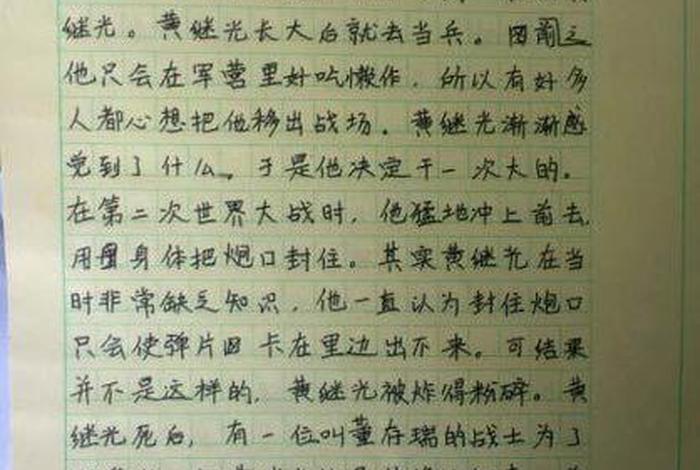 继光。黄继光长大后就去当兵。因前之
他只会在军营里好吃懒作，所以有好多
人都心想把他移出战场。黄继光渐渐感
觉到了什么。于是他决定干一次大的。
在第二次世界大战时，他猛地冲上前去，
用身体把炮口封住。其实黄继光在当
时非常缺乏知识，他一直认为封住炮口
只会使弹片卡在里边出不来。可结果
并不是这样的，黄继光被炸得粉碎。黄
继光死后，有一位叫董存瑞的战士为了